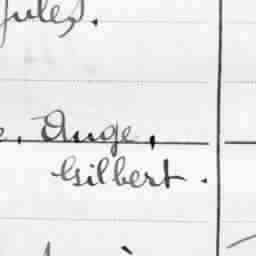 Jules.
Ange,
Gilbert.